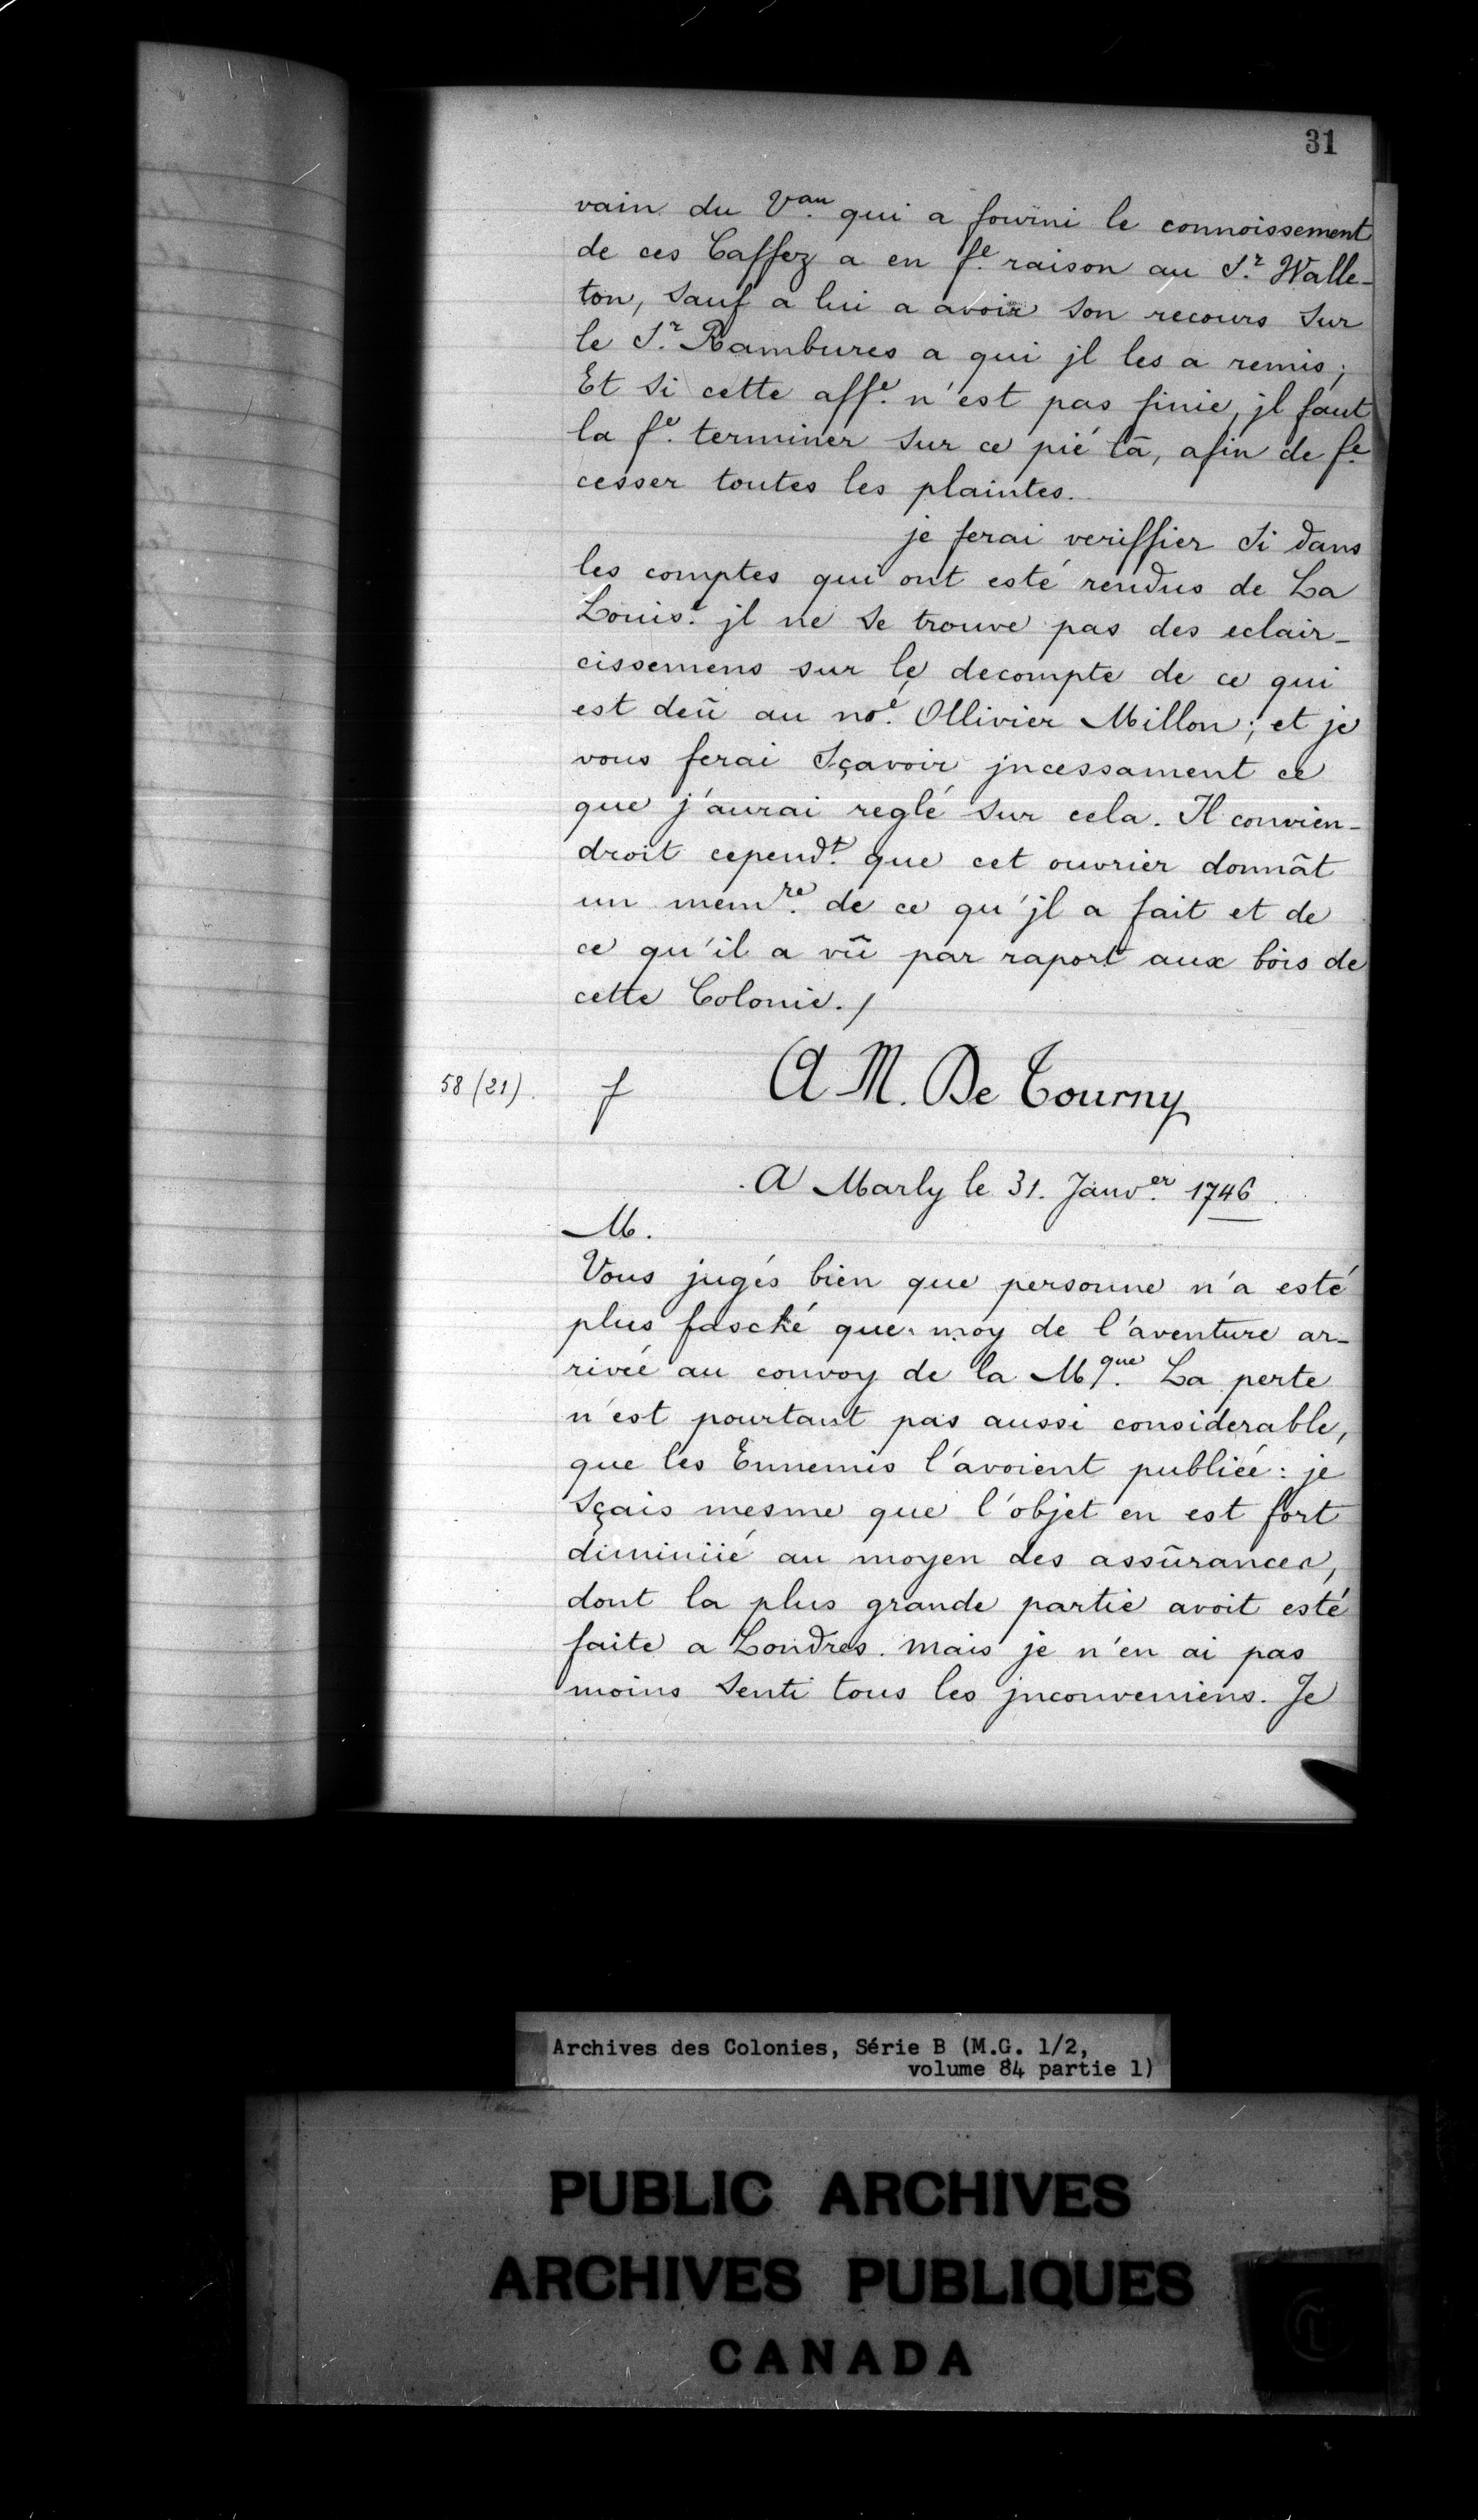 31
vain du Vau. qui a fourni le connoissement
de ces Caffez a en fe. raison au Sr. Walle-
ton, sauf a lui a avoir son recours sur
le Sr. Rambures a qui jl les a remis;
Et si cette affe. n'est pas finie, jl faut
la fe. terminer sur ce pié là, afin de fe.
cesser toutes les plaintes.
je ferai veriffier si dans
les comptes qui ont esté rendus de La
Louise. jl ne se trouve pas des eclair-
cissemens sur le decompte de ce qui
est deû au noé. Ollivier Millon; et je
vous ferai sçavoir jncessament ce
que j'aurai reglé sur cela. Il convien-
droit cependt. que cet ouvrier donnât
un memre. de ce qu'jl a fait et de
ce qu'il a vû par raport aux bois de
cette Colonie./
58 (21). f A M. De Tourny
A Marly le 31. Janver. 1746.
M.
Vous jugés bien que personne n'a esté
plus fasché que moy de l'aventure ar-
rivée au convoy de la Mque. La perte
n'est pourtant pas aussi considerable,
que les Ennemis l'avoient publiée: je
sçais mesme que l'objet en est fort
diminüé au moyen des assûrances,
dont la plus grande partie avoit esté
faite a Londres. mais je n'en ai pas
moins senti tous les jnconveniens. Je
Archives des Colonies, Série B (M.G. 1/2,
volume 84 partie 1)
PUBLIC ARCHIVES
ARCHIVES PUBLIQUES
CANADA